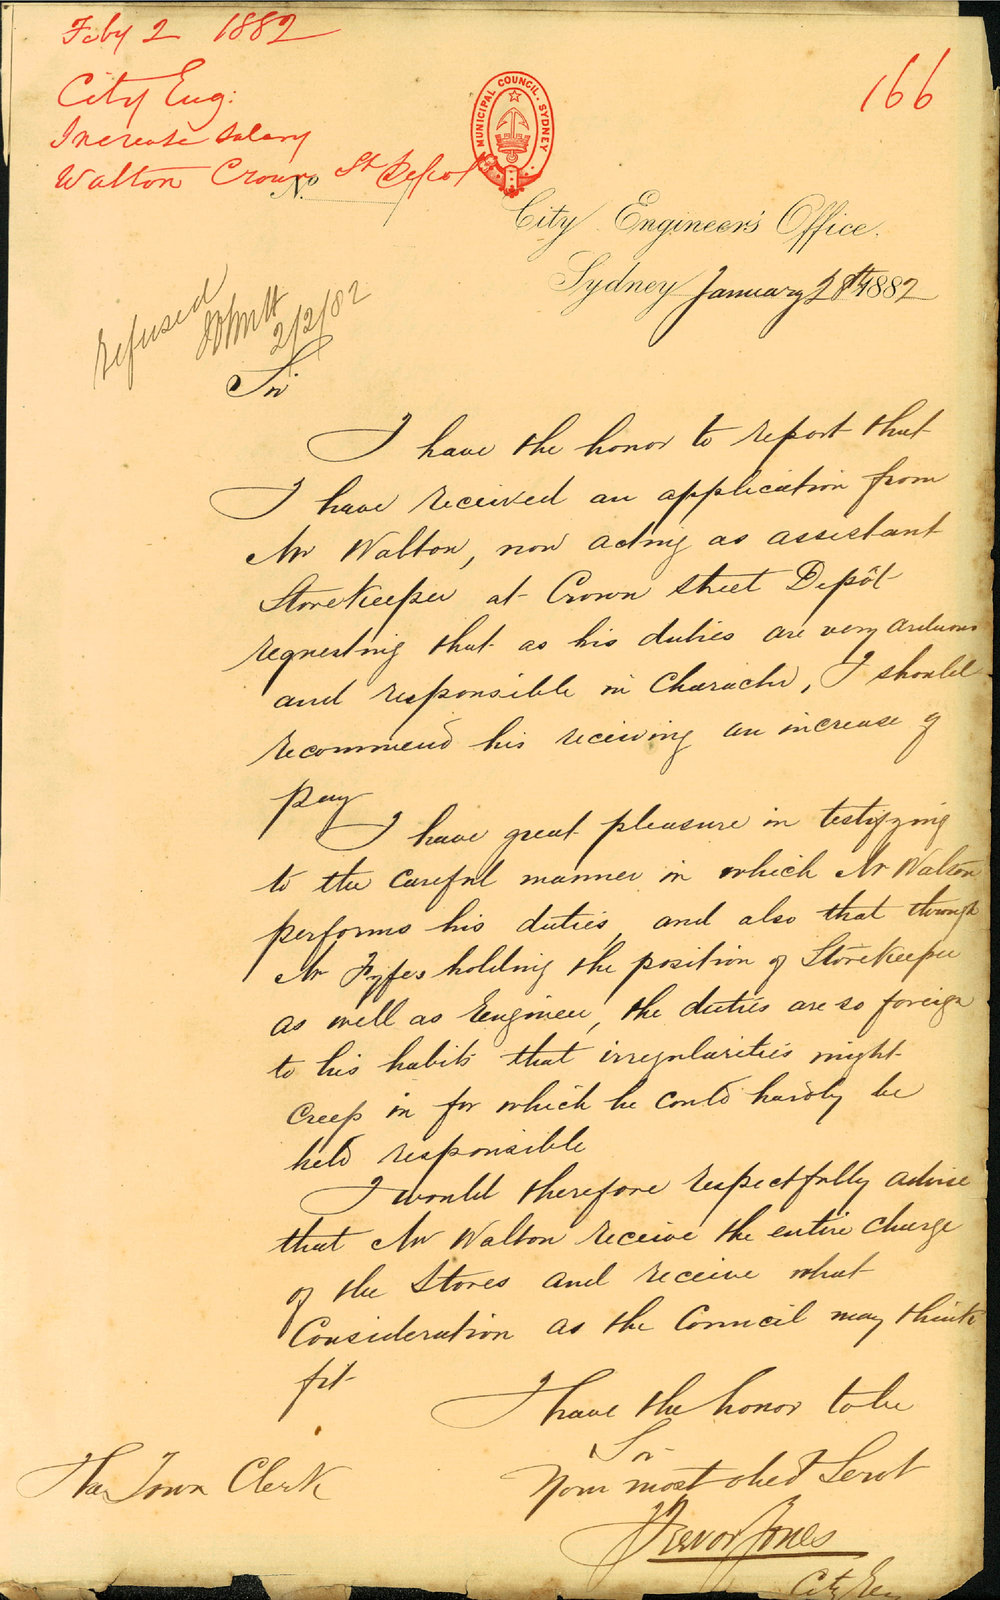 Feby 2 1882
166
City Eng:
Increase Salary
Walton Crown St Depot
MUNICIPAL COUNCIL. SYDNEY
No
City Engineer's Office.
Sydney January 28th 1882
Refused
2/2/82
Sir
I have the honor to report that
I have received an application from
Mr Walton, now acting as assistant
Storekeeper at Crown Street Depôt
requesting that as his duties are very arduous
and responsible in Character, I should
recommend his receiving an increase of
pay
I have great pleasure in testifying
to the careful manner in which Mr Walton
performs his duties, and also that through
Mr Fyfes holding the position of Storekeeper
as well as Engineer, the duties are so foreign
to his habits that irregularities might
creep in for which he could hardly be
held responsible
I would therefore respectfully advise
that Mr Walton receive the entire charge
of the Stores and receive what
Consideration as the Council may think
fit
I have the honor to be
Sir
Your most obed Servt
Trevor Jones
City Eng
The Town Clerk